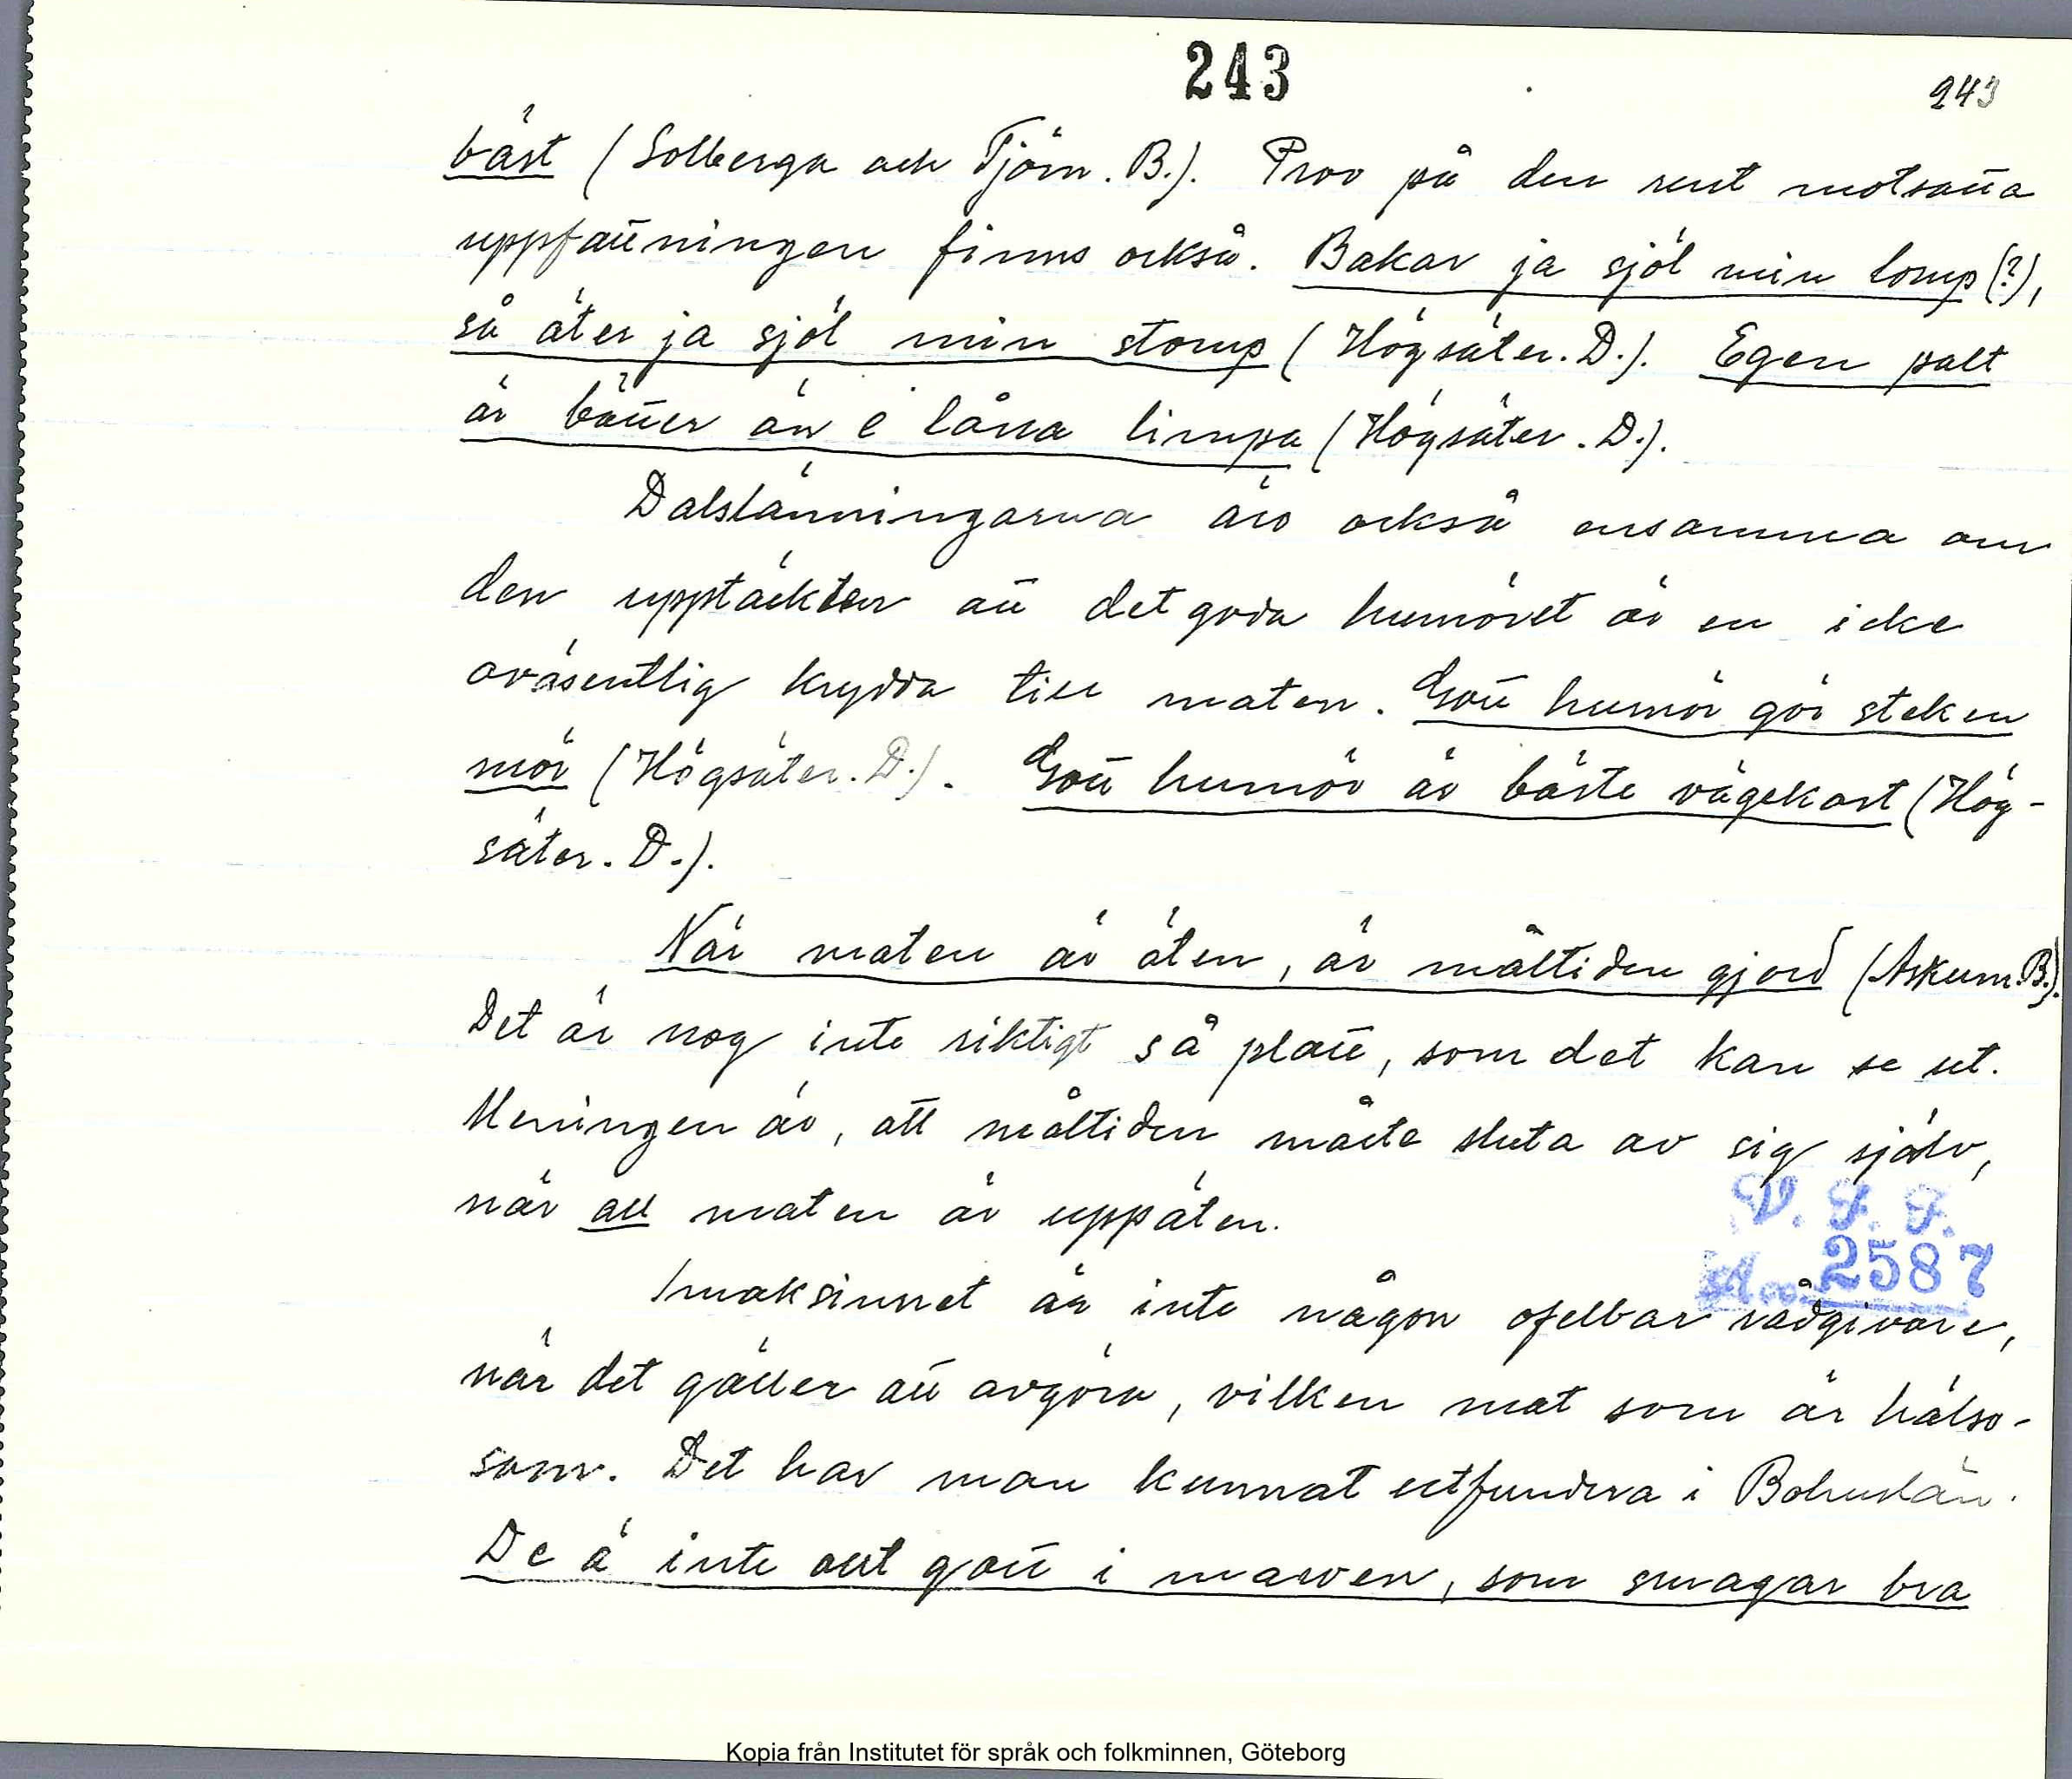 243
243
bäst (Solberga och Tjörn. B.). Prov på den rent motsatta
uppfattningen finns också. Bakar ja sjöl min lomp (?),
så äter ja sjöl min stomp (Högsäter. D.). Egen palt
är bätter än e låna limpa (Högsäter. D.).
Dalslänningarna äro också ensamma om
den upptäckten att det goda humöret är en icke
oväsentlig krydda till maten. Gott humör gör steken
mör (Högsäter. D.). Gott humör är bäste vägekost (Hög-
säter. D.).
När maten är äten, är måltiden gjord (Askum. B.).
Det är nog inte riktigt så platt, som det kan se ut.
Meningen är, att måltiden måste sluta av sig själv,
när all maten är uppäten.
V. F. F.
Acc. 2587
Smaksinnet är inte någon ofelbar rådgivare,
när det gäller att avgöra, vilken mat som är hälso-
sam. Det har man kunnat utfundera i Bohuslän.
De ä inte allt gott i mawen, som smagar bra
Kopia från Institutet för språk och folkminnen, Göteborg